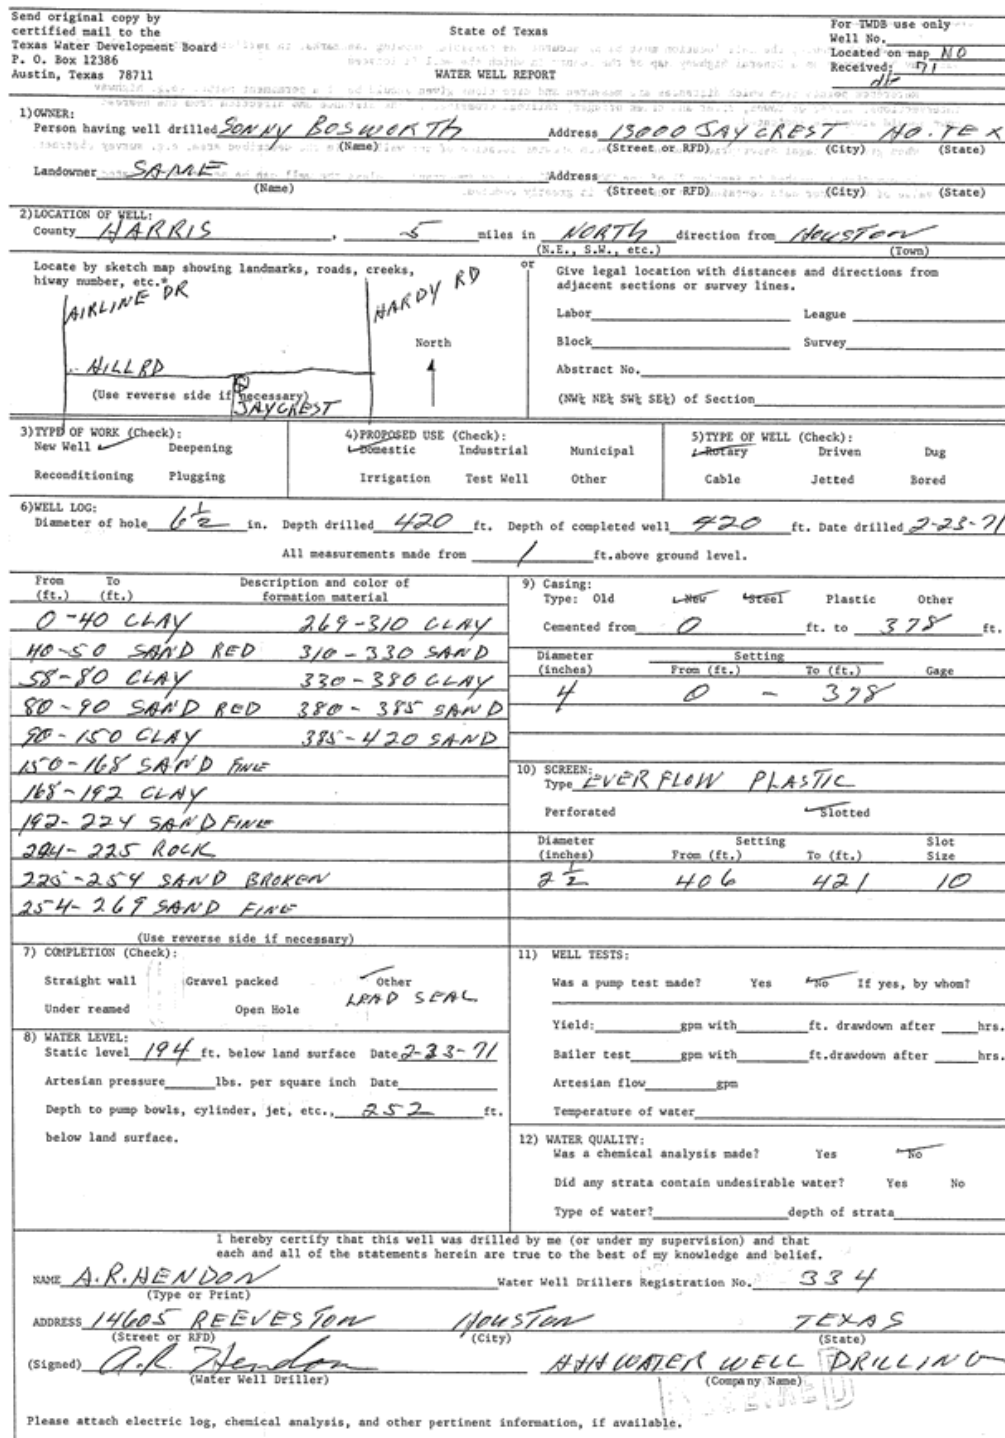 Send original copy by
certified mail to the
Texas Water Development Board
P. O. Box 12386
Austin, Texas 78711
State of Texas
WATER WELL REPORT
For TWDB use only
Well No.
Located on map NO
Received: 71
1)OWNER:
Person having well drilled SONNY BOSWORTH Address 15000 JAYCREST HO. TEX
(Name) (Street or RFD) (City) (State)
Landowner SAME Address
(Name) (Street or RFD) (City) (State)
2)LOCATION OF WELL:
County HARRIS , 5 miles in NORTH direction from HOUSTON
(N.E., S.W., etc.) (Town)
Locate by sketch map showing landmarks, roads, creeks,
hiway number, etc.*
AIRLINE DR
HARDY RD
North
HILL RD
(Use reverse side if necessary)
JAYCREST
or
Give legal location with distances and directions from
adjacent sections or survey lines.
Labor League
Block Survey
Abstract No.
(NW¼ NE¼ SW¼ SE¼) of Section
3)TYPE OF WORK (Check):
New Well ✓ Deepening
Reconditioning Plugging
4)PROPOSED USE (Check):
✓ Domestic Industrial Municipal
Irrigation Test Well Other
5)TYPE OF WELL (Check):
✓ Rotary Driven Dug
Cable Jetted Bored
6)WELL LOG:
Diameter of hole 6 1/2 in. Depth drilled 420 ft. Depth of completed well 420 ft. Date drilled 2-23-71
All measurements made from 1 ft.above ground level.
From To Description and color of
(ft.) (ft.) formation material
0-40 CLAY 269-310 CLAY
40-50 SAND RED 310-330 SAND
58-80 CLAY 330-380 CLAY
80-90 SAND RED 380-385 SAND
90-150 CLAY 385-420 SAND
150-168 SAND FINE
168-192 CLAY
192-224 SAND FINE
224-225 ROCK
225-254 SAND BROKEN
254-269 SAND FINE
(Use reverse side if necessary)
9) Casing:
Type: Old ✓ New ✓ Steel Plastic Other
Cemented from 0 ft. to 378 ft.
Diameter Setting
(inches) From (ft.) To (ft.) Gage
4 0 - 378
10) SCREEN:
Type EVER FLOW PLASTIC
Perforated ✓ Slotted
Diameter Setting Slot
(inches) From (ft.) To (ft.) Size
2 1/2 406 421 10
7) COMPLETION (Check):
Straight wall Gravel packed ✓ Other
LEAD SEAL
Under reamed Open Hole
8) WATER LEVEL:
Static level 194 ft. below land surface Date 2-23-71
Artesian pressure lbs. per square inch Date
Depth to pump bowls, cylinder, jet, etc., 252 ft.
below land surface.
11) WELL TESTS:
Was a pump test made? Yes ✓ No If yes, by whom?
Yield: gpm with ft. drawdown after hrs.
Bailer test gpm with ft.drawdown after hrs.
Artesian flow gpm
Temperature of water
12) WATER QUALITY:
Was a chemical analysis made? Yes ✓ No
Did any strata contain undesirable water? Yes No
Type of water? depth of strata
I hereby certify that this well was drilled by me (or under my supervision) and that
each and all of the statements herein are true to the best of my knowledge and belief.
NAME A.R. HENDON Water Well Drillers Registration No. 334
(Type or Print)
ADDRESS 14605 REEVESTON HOUSTON TEXAS
(Street or RFD) (City) (State)
(Signed) A.R. Hendon AHH WATER WELL DRILLING
(Water Well Driller) (Company Name)
Please attach electric log, chemical analysis, and other pertinent information, if available.